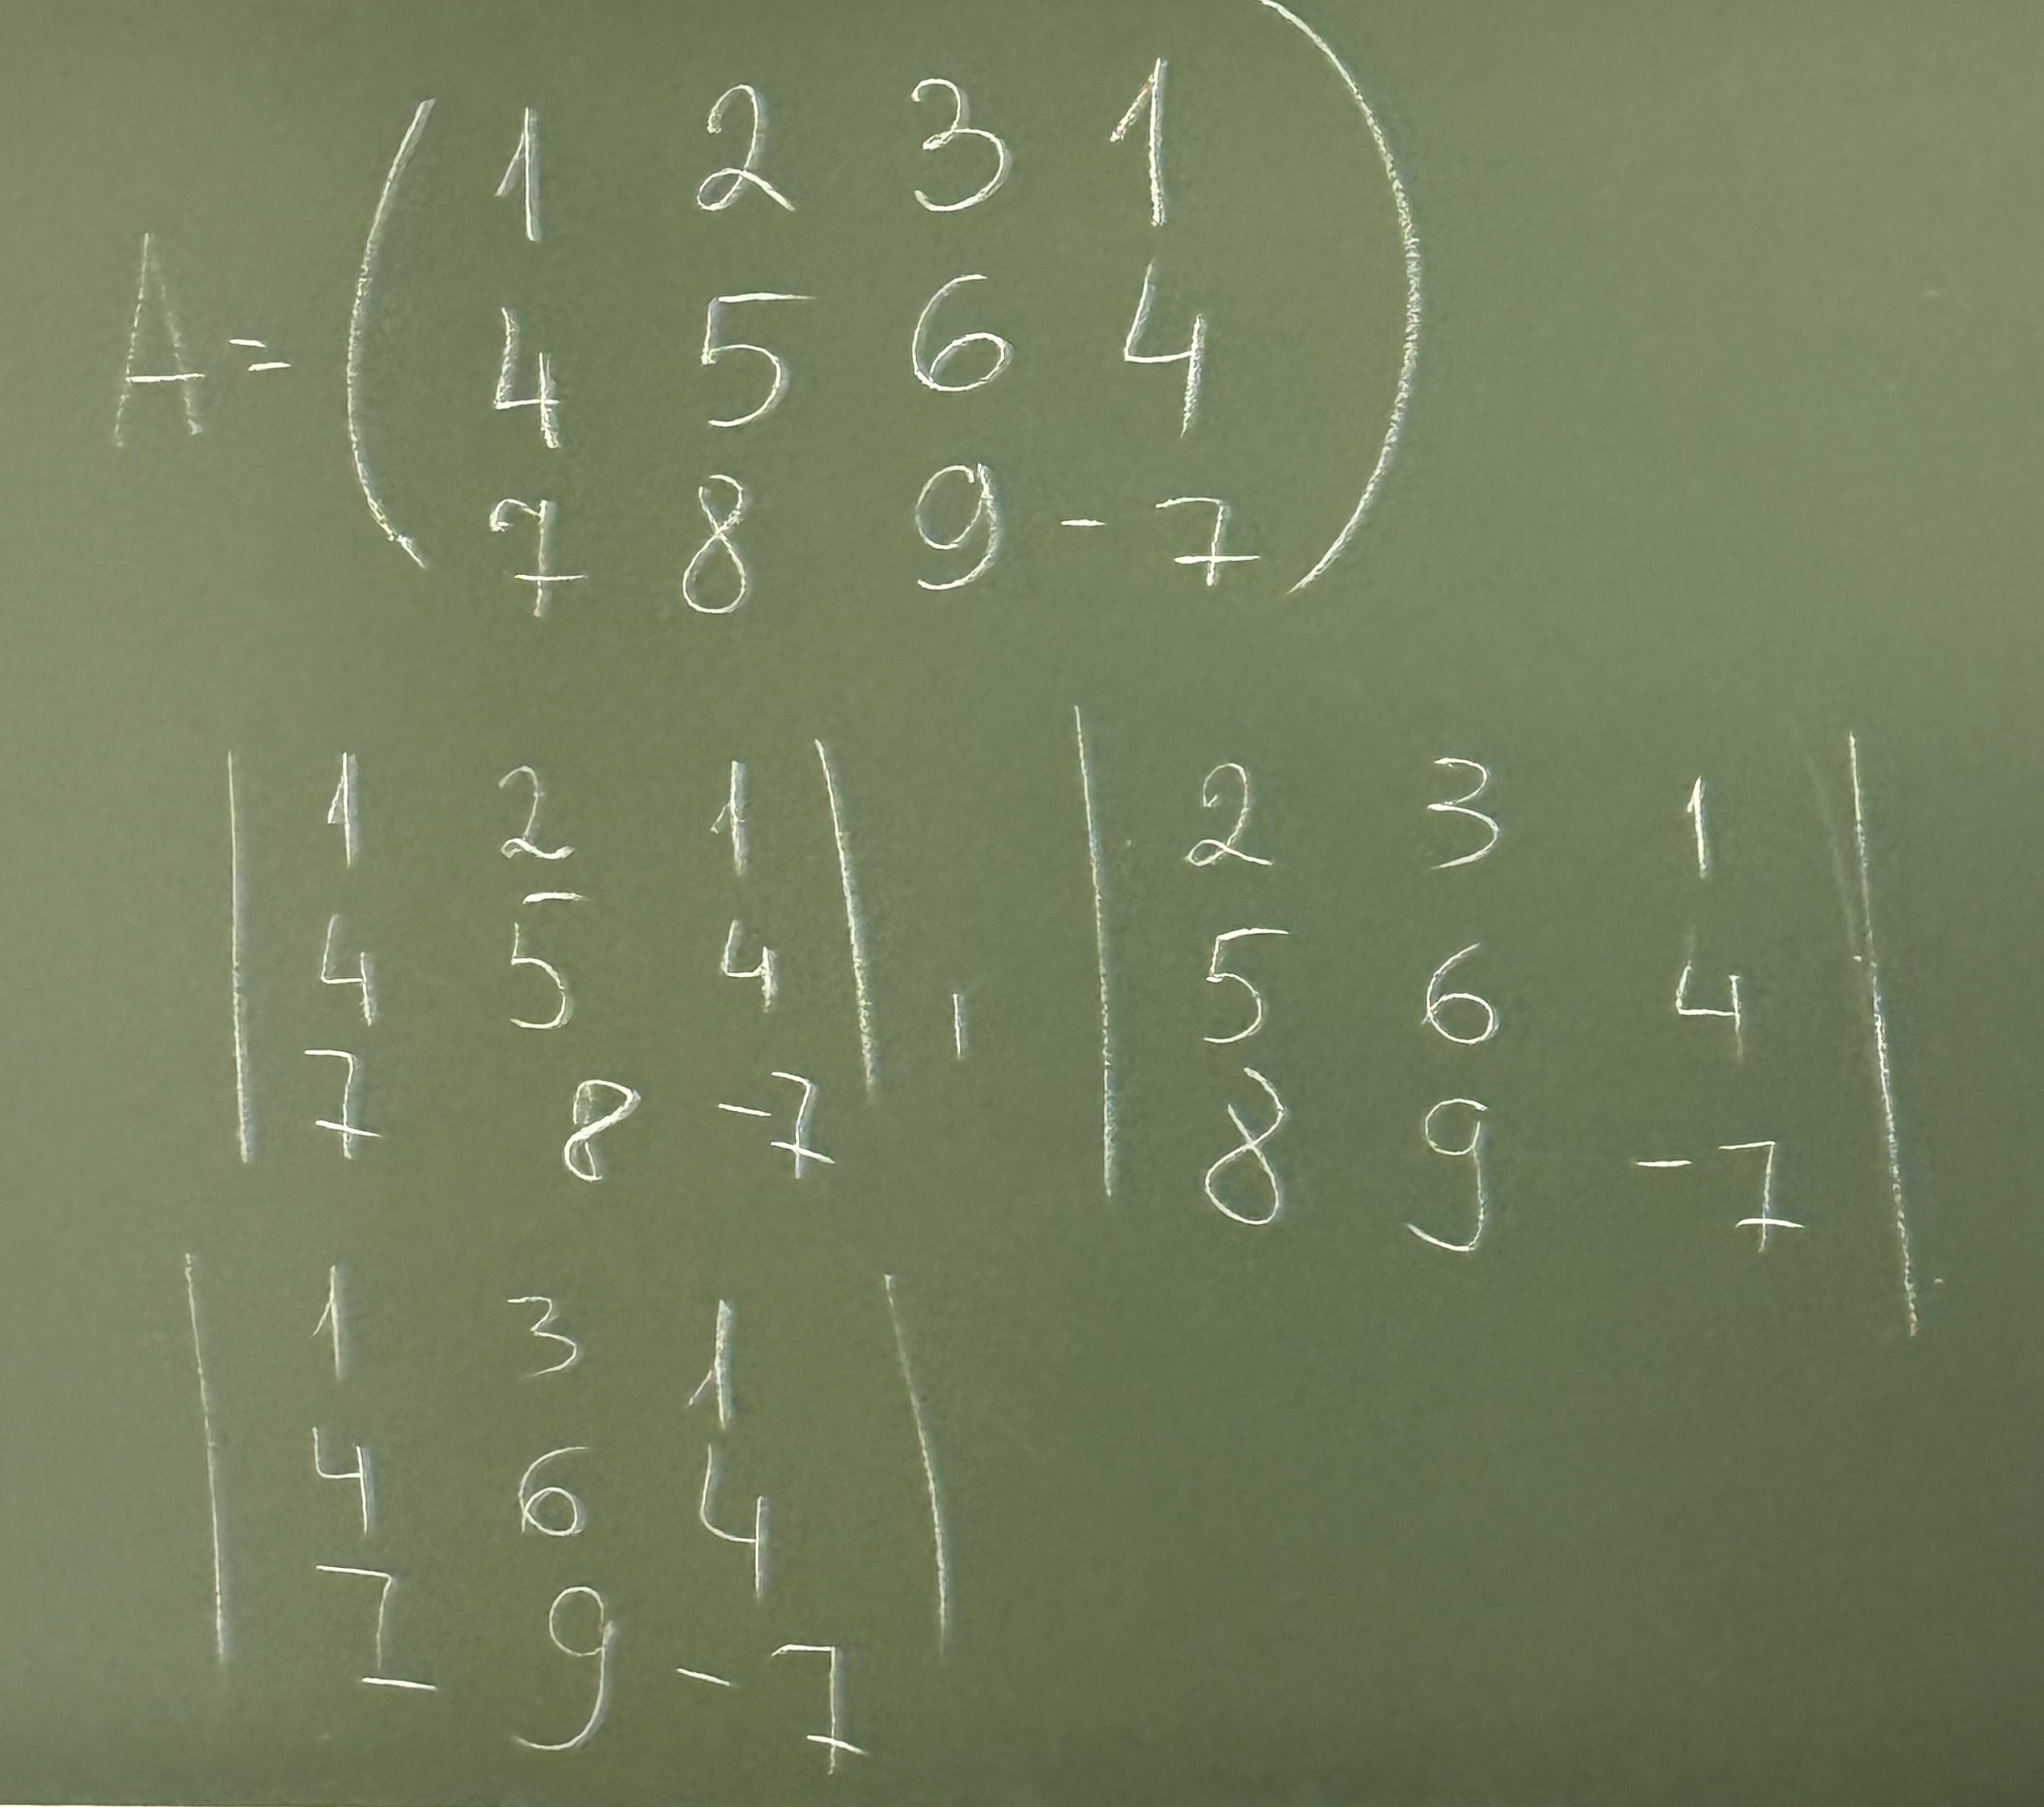 A = ( 1 2 3 1
4 5 6 4
7 8 9 -7 )
| 1 2 1
4 5 4
7 8 -7 | ,
| 2 3 1
5 6 4
8 9 -7 |
| 1 3 1
4 6 4
7 9 -7 |